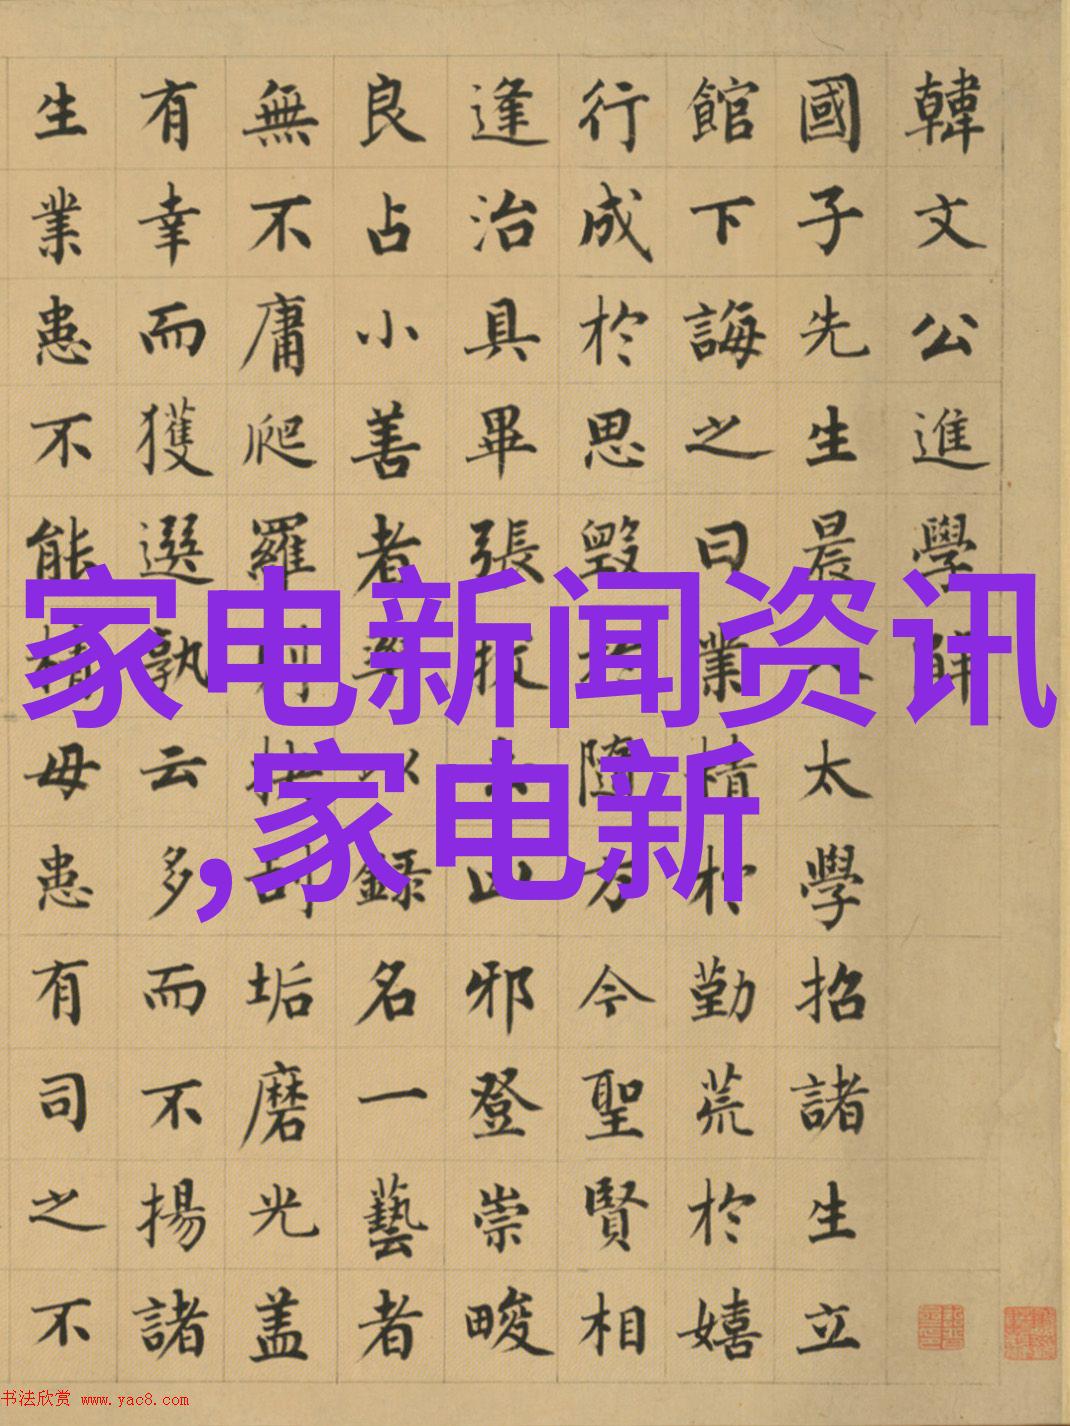 韓文公進學
國子先生晨太學招諸生立
館下誨之曰業精於勤荒於嬉
行成於思毀於隨方今聖賢相
逢治具畢張拔山邪登崇畯
良占小善者率以録名一藝者
無不庸爬羅抉刮垢磨光盖
有幸而獲選孰云多而不揚諸
生業患不能精毋患有司之不
家电新闻资讯
,家电新
书法欣赏 www.yac8.com